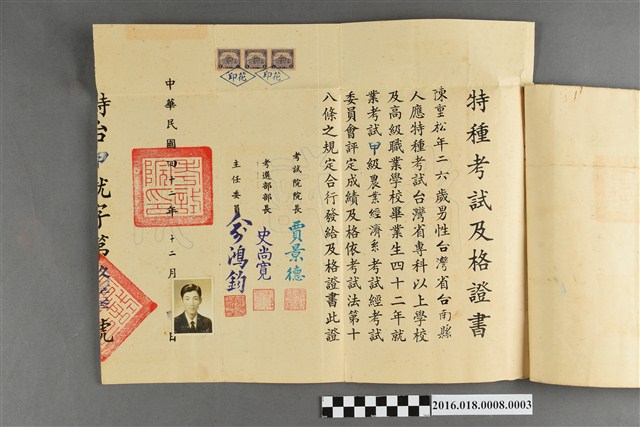 特種考試及格證書
陳重松年二六歲男性台灣省台南縣
人應特種考試台灣省專科以上學校
及高級職業學校畢業生四十二年就
業考試甲級農業經濟系考試經考試
委員會評定成績及格依考試法第十
八條之規定合行發給及格證書此證
考試院院長 賈景德
考選部部長 史尚寬
主任委員 俞鴻鈞
印花 印花
中華民國四十二年十二月 日
特台甲就字第 號
考試院印
2016.018.0008.0003